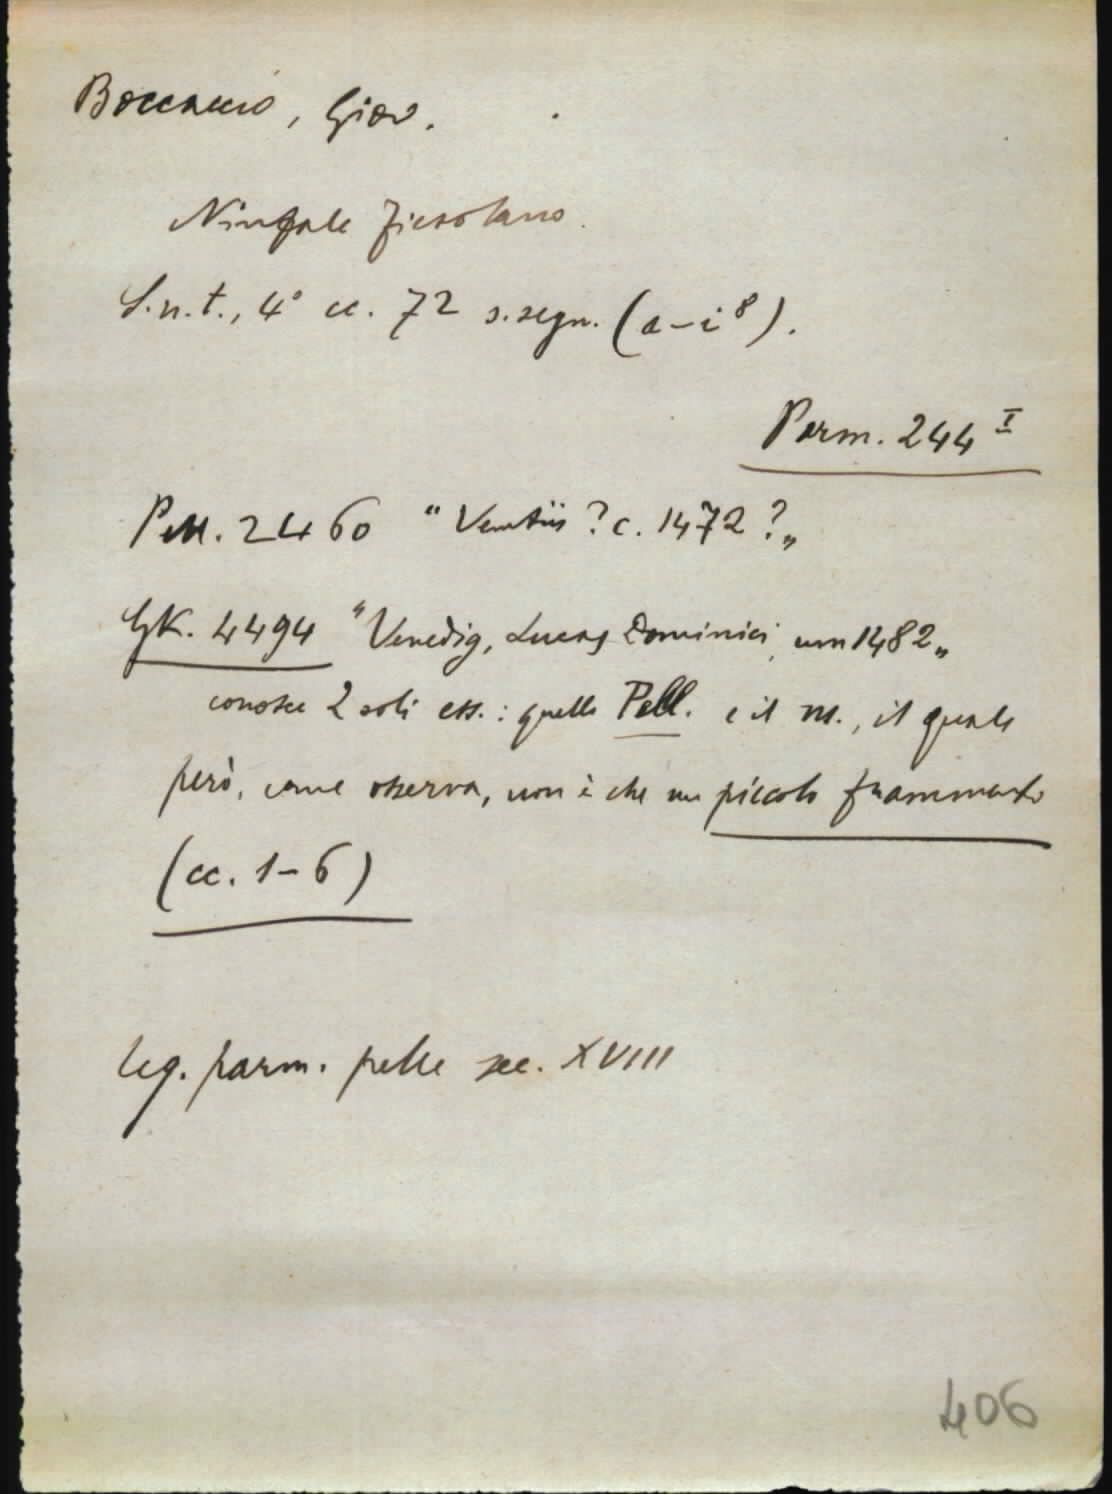 Boccaccio, Giov.
Ninfale fiesolano.
S.n.t., 4° cc. 72 s.segn. (a–i⁸).
Parm. 244 I
Pell. 2460 "Venetiis? c. 1472?„
GK. 4494 "Venedig, Lucas Dominici, um 1482„
conosce 2 soli ess.: quello Pell. e il ns., il quale
però, come osserva, non è che un piccolo frammento
(cc. 1–6)
leg. parm. pelle sec. XVIII
406